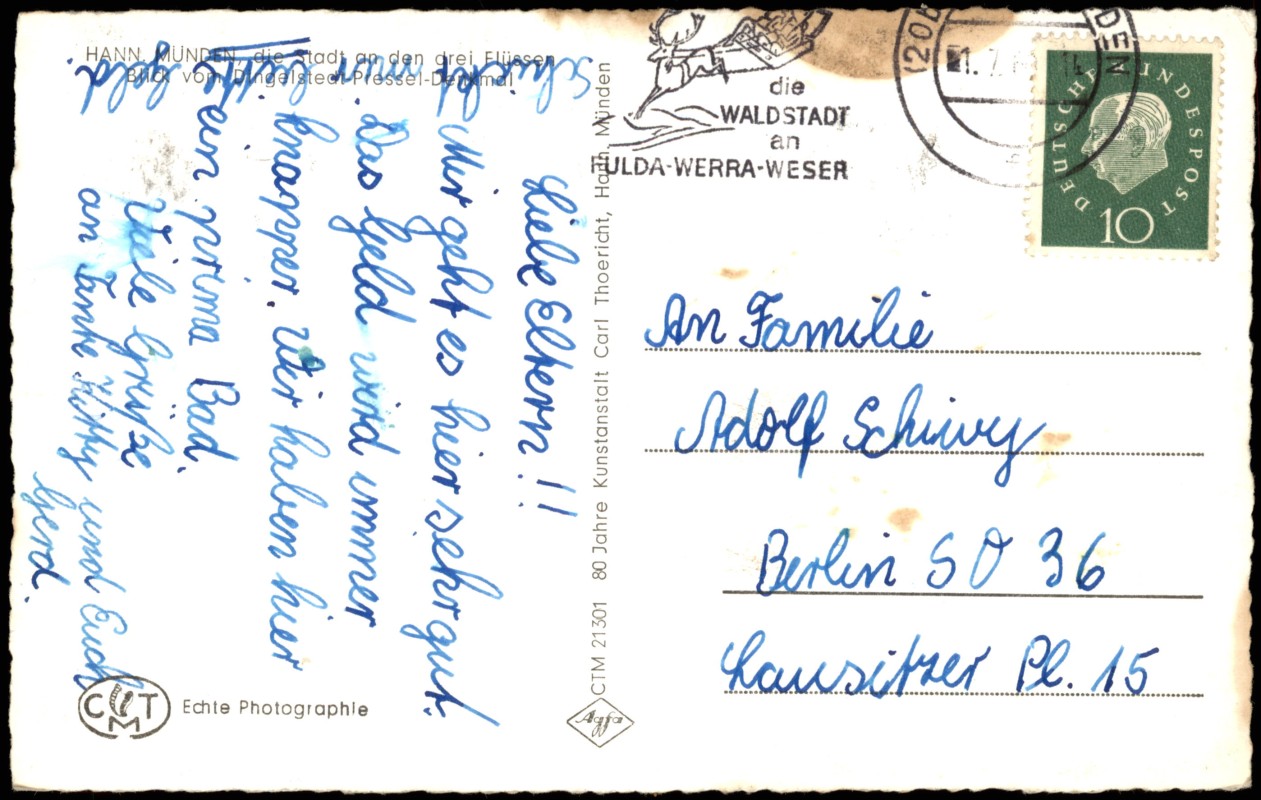 HANN. MÜNDEN, die Stadt an den drei Flüssen
Blick vom Dingelstedt-Pressel-Denkmal
Liebe Eltern!!
Mir geht es hier sehr gut.
Das Geld wird immer
knapper. Wir haben hier
ein prima Bad.
Viele Grüße
an Tante Kitty und Euch
Gerd.
Schickt mir
bitte
Geld
CMT Echte Photographie
CTM 21301 80 Jahre Kunstanstalt Carl Thoericht, Hann. Münden
Agfa
die
WALDSTADT
an
FULDA-WERRA-WESER
(20b
DEN
1. 7.
14
DEUTSCHE BUNDESPOST
10
An Familie
Adolf Schiwy
Berlin SO 36
Lausitzer Pl. 15